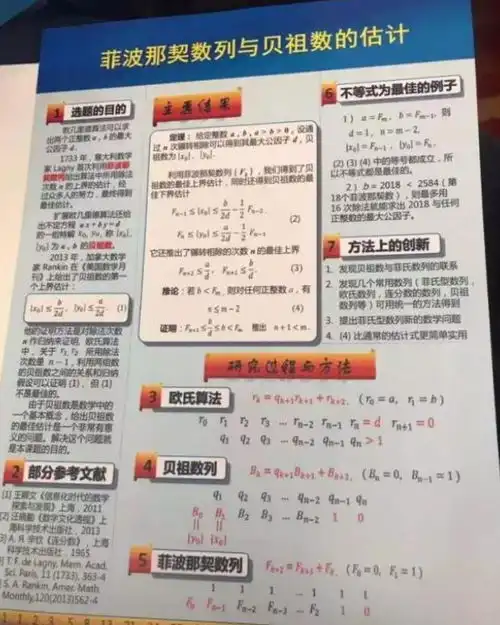 菲波那契数列与贝祖数的估计
1 选题的目的
欧几里德算法可以求
出两个正整数 a, b 的最大
公因子 d.
1733 年, 意大利数学
家 Lagny 首次利用菲波那
契数列给出算法中所用除法
次数 n 的上界的估计, 经
过众多人的努力, 最终得到
最佳估计.
扩展欧几里德算法还给
出不定方程 ax+by=d
的一组特解 x₀, y₀, 称 |x₀|,
|y₀| 为 a, b 的贝祖数.
2013 年, 加拿大数学
家 Rankin 在《美国数学月
刊》上给出了贝祖数的第一
个上界估计:
|x₀| ≤ b/d, |y₀| ≤ a/d (1)
他的证明方法是对除法次数
n 作归纳来证明, 欧氏算法
中, 关于 r₁, r₂ 所用除法
次数量 n − 1, 利用两组数
的贝祖数之间的关系和归纳
假设可以证明 (1), 但 (1)
不是最佳的.
由于贝祖数是数学中的
一个基本概念, 给出贝祖数
的最佳估计是一个非常有意
义的问题. 解决这个问题就
是本课题的目的.
2 部分参考文献
[1] 王殿文《信息化时代的数学
探索与发现》上海, 2011
[2] 汪晓勤《数学文化透视》上
海科学技术出版社, 2013
[3] A. Я. 辛钦《连分数》, 上海
科学技术出版社, 1965
T. F. de Lagny, Mem. Acad.
Sci. Paris, 11 (1733), 363-4
S. A. Rankin, Amer. Math.
Monthly, 120(2013)562-4
主要结果
定理: 给定整数 a, b, a > b > 0, 设通
过 n 次辗转相除可以得到其最大公因子 d, 贝
祖数为 |x₀|, |y₀|.
利用菲波那契数列 (Fₙ), 我们得到了贝
祖数的最佳上界估计, 同时还得到贝祖数的最
佳下界估计
Fₙ₋₁ ≤ |x₀| ≤ b/2d − 1/2 Fₙ₋₂,
(2)
Fₙ ≤ |y₀| ≤ a/2d − 1/2 Fₙ₋₁
它还推出了辗转相除的次数 n 的最佳上界
Fₙ₊₂ ≤ a/d, Fₙ₊₁ ≤ b/d. (3)
推论: 若 b < Fₘ, 则对任何正整数 a, 有
n ≤ m − 2 (4)
证明: Fₙ₊₁ ≤ b/d ≤ b < Fₘ 推出 n + 1 < m.
6 不等式为最佳的例子
1) a = Fₘ, b = Fₘ₋₁, 则
d = 1, n = m − 2,
|x₀| = Fₙ₋₁, |y₀| = Fₙ,
(2) (3) (4) 中的等号都成立, 所
以不等式都是最佳的.
2) b = 2018 < 2584 (第
18个菲波那契数), 则最多用
16 次除法就能求出 2018 与任何
正整数的最大公因子.
7 方法上的创新
1. 发现贝祖数与菲氏数列的联系
2. 发现几个常用数列 (菲氏型数列,
欧氏数列, 连分数的数列, 贝祖
数列等) 可用统一的方法得到
3. 提出菲氏型数列新的数学问题
4. (4) 比通常的估计式更简单实用
研究过程与方法
3 欧氏算法 rₖ = qₖ₊₁rₖ₊₁ + rₖ₊₂, (r₀ = a, r₁ = b)
r₀ r₁ r₂ r₃ ... rₙ₋₂ rₙ₋₁ rₙ = d rₙ₊₁ = 0
q₁ q₂ q₃ ... qₙ₋₂ qₙ₋₁ qₙ > 1
4 贝祖数列 Bₖ = qₖ₊₁Bₖ₊₁ + Bₖ₊₂, (Bₙ = 0, Bₙ₋₁ = 1)
q₁ q₂ q₃ ... qₙ₋₂ qₙ₋₁ qₙ
B₀ B₁ B₂ B₃ ... Bₙ₋₂ 1 0
|| ||
|y₀| |x₀|
5 菲波那契数列 Fₖ₊₂ = Fₖ₊₁ + Fₖ, (F₀ = 0, F₁ = 1)
1 1 1 ... 1 1 1
Fₙ Fₙ₋₁ Fₙ₋₂ Fₙ₋₃ ... F₂ 1 0